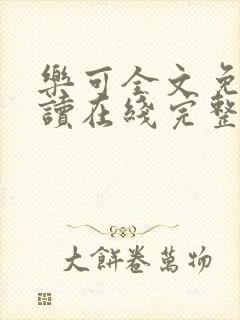 樂可全文免
讀在綫完整
大餅卷萬物